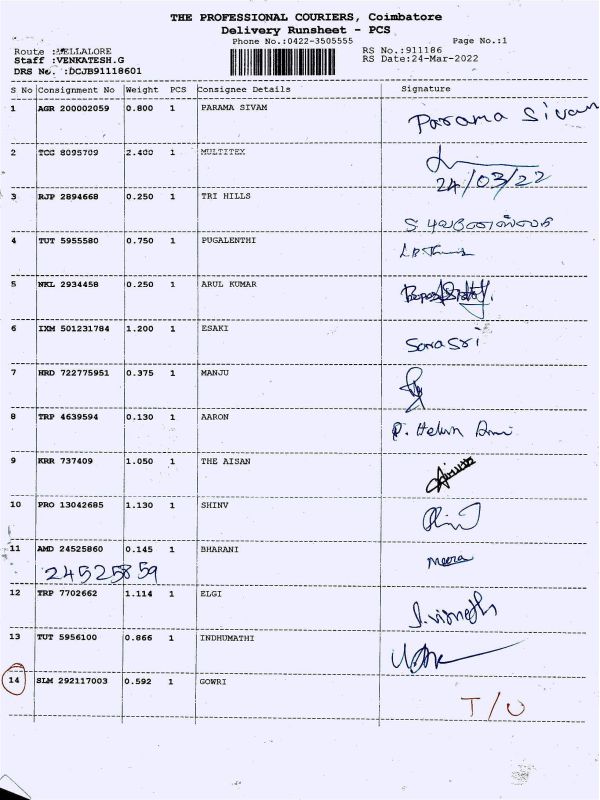 THE PROFESSIONAL COURIERS, Coimbatore
Delivery Runsheet - PCS
Phone No.:0422-3505555 Page No.:1
Route :VELLALORE RS No.:911186
Staff :VENKATESH.G RS Date:24-Mar-2022
DRS No. :DCJB91118601
S No Consignment No Weight PCS Consignee Details Signature
1 AGR 200002059 0.800 1 PARAMA SIVAM Parama Sivam
2 TCG 8095709 2.400 1 MULTITEX
24/03/22
3 RJP 2894668 0.250 1 TRI HILLS
4 TUT 5955580 0.750 1 PUGALENTHI
5 NKL 2934458 0.250 1 ARUL KUMAR
6 IXM 501231784 1.200 1 ESAKI Sona Sri
7 HRD 722775951 0.375 1 MANJU
8 TRP 4639594 0.130 1 AARON P. Helen
9 KRR 737409 1.050 1 THE AISAN
10 PRO 13042685 1.130 1 SHINV
11 AMD 24525860 0.145 1 BHARANI Meera
24525859
12 TRP 7702662 1.114 1 ELGI
13 TUT 5956100 0.866 1 INDHUMATHI
14 SLM 292117003 0.592 1 GOWRI T/U